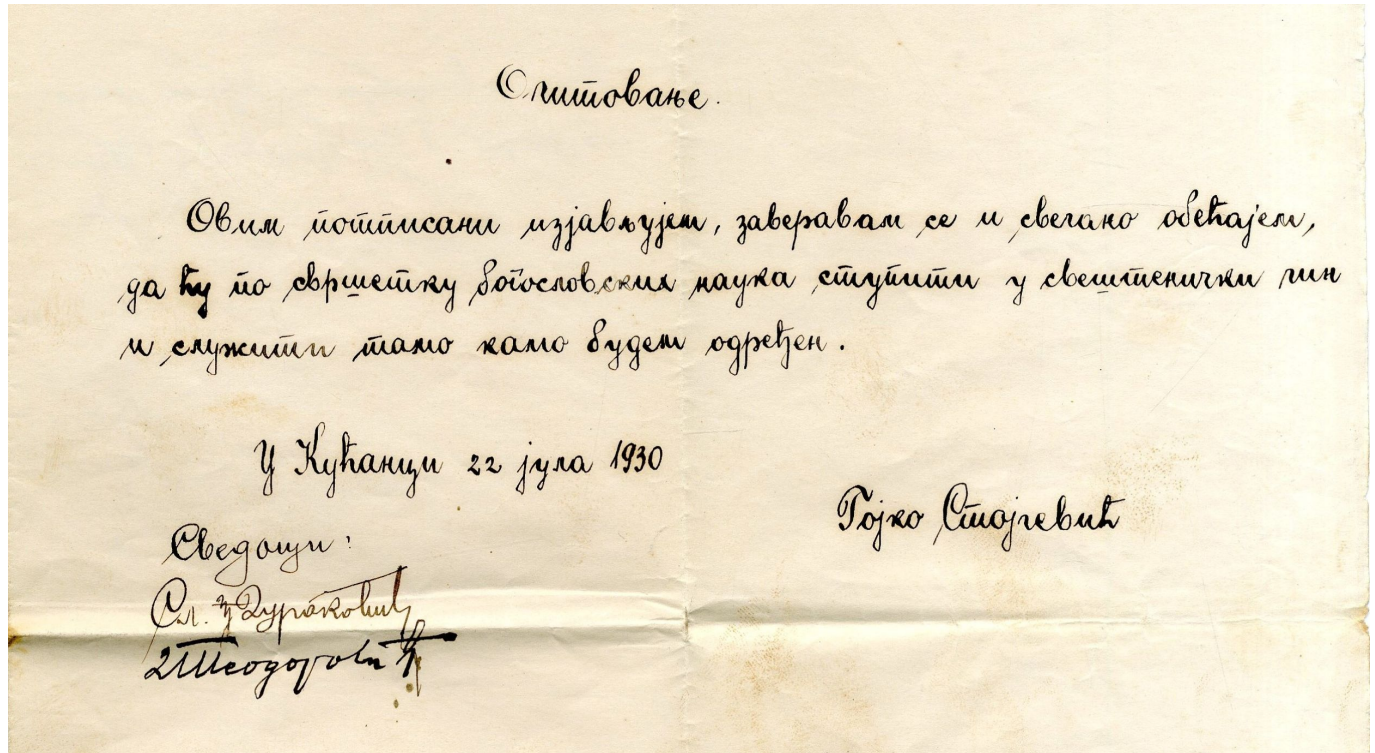 Очитовање.
Овим потписани изјављујем, заверавам се и свечано обећајем,
да ћу по свршетку богословских наука ступити у свештенички чин
и служити тамо камо будем одређен.
У Кућанци 22 јула 1930
Гојко Стојчевић
Сведоци:
Сл.